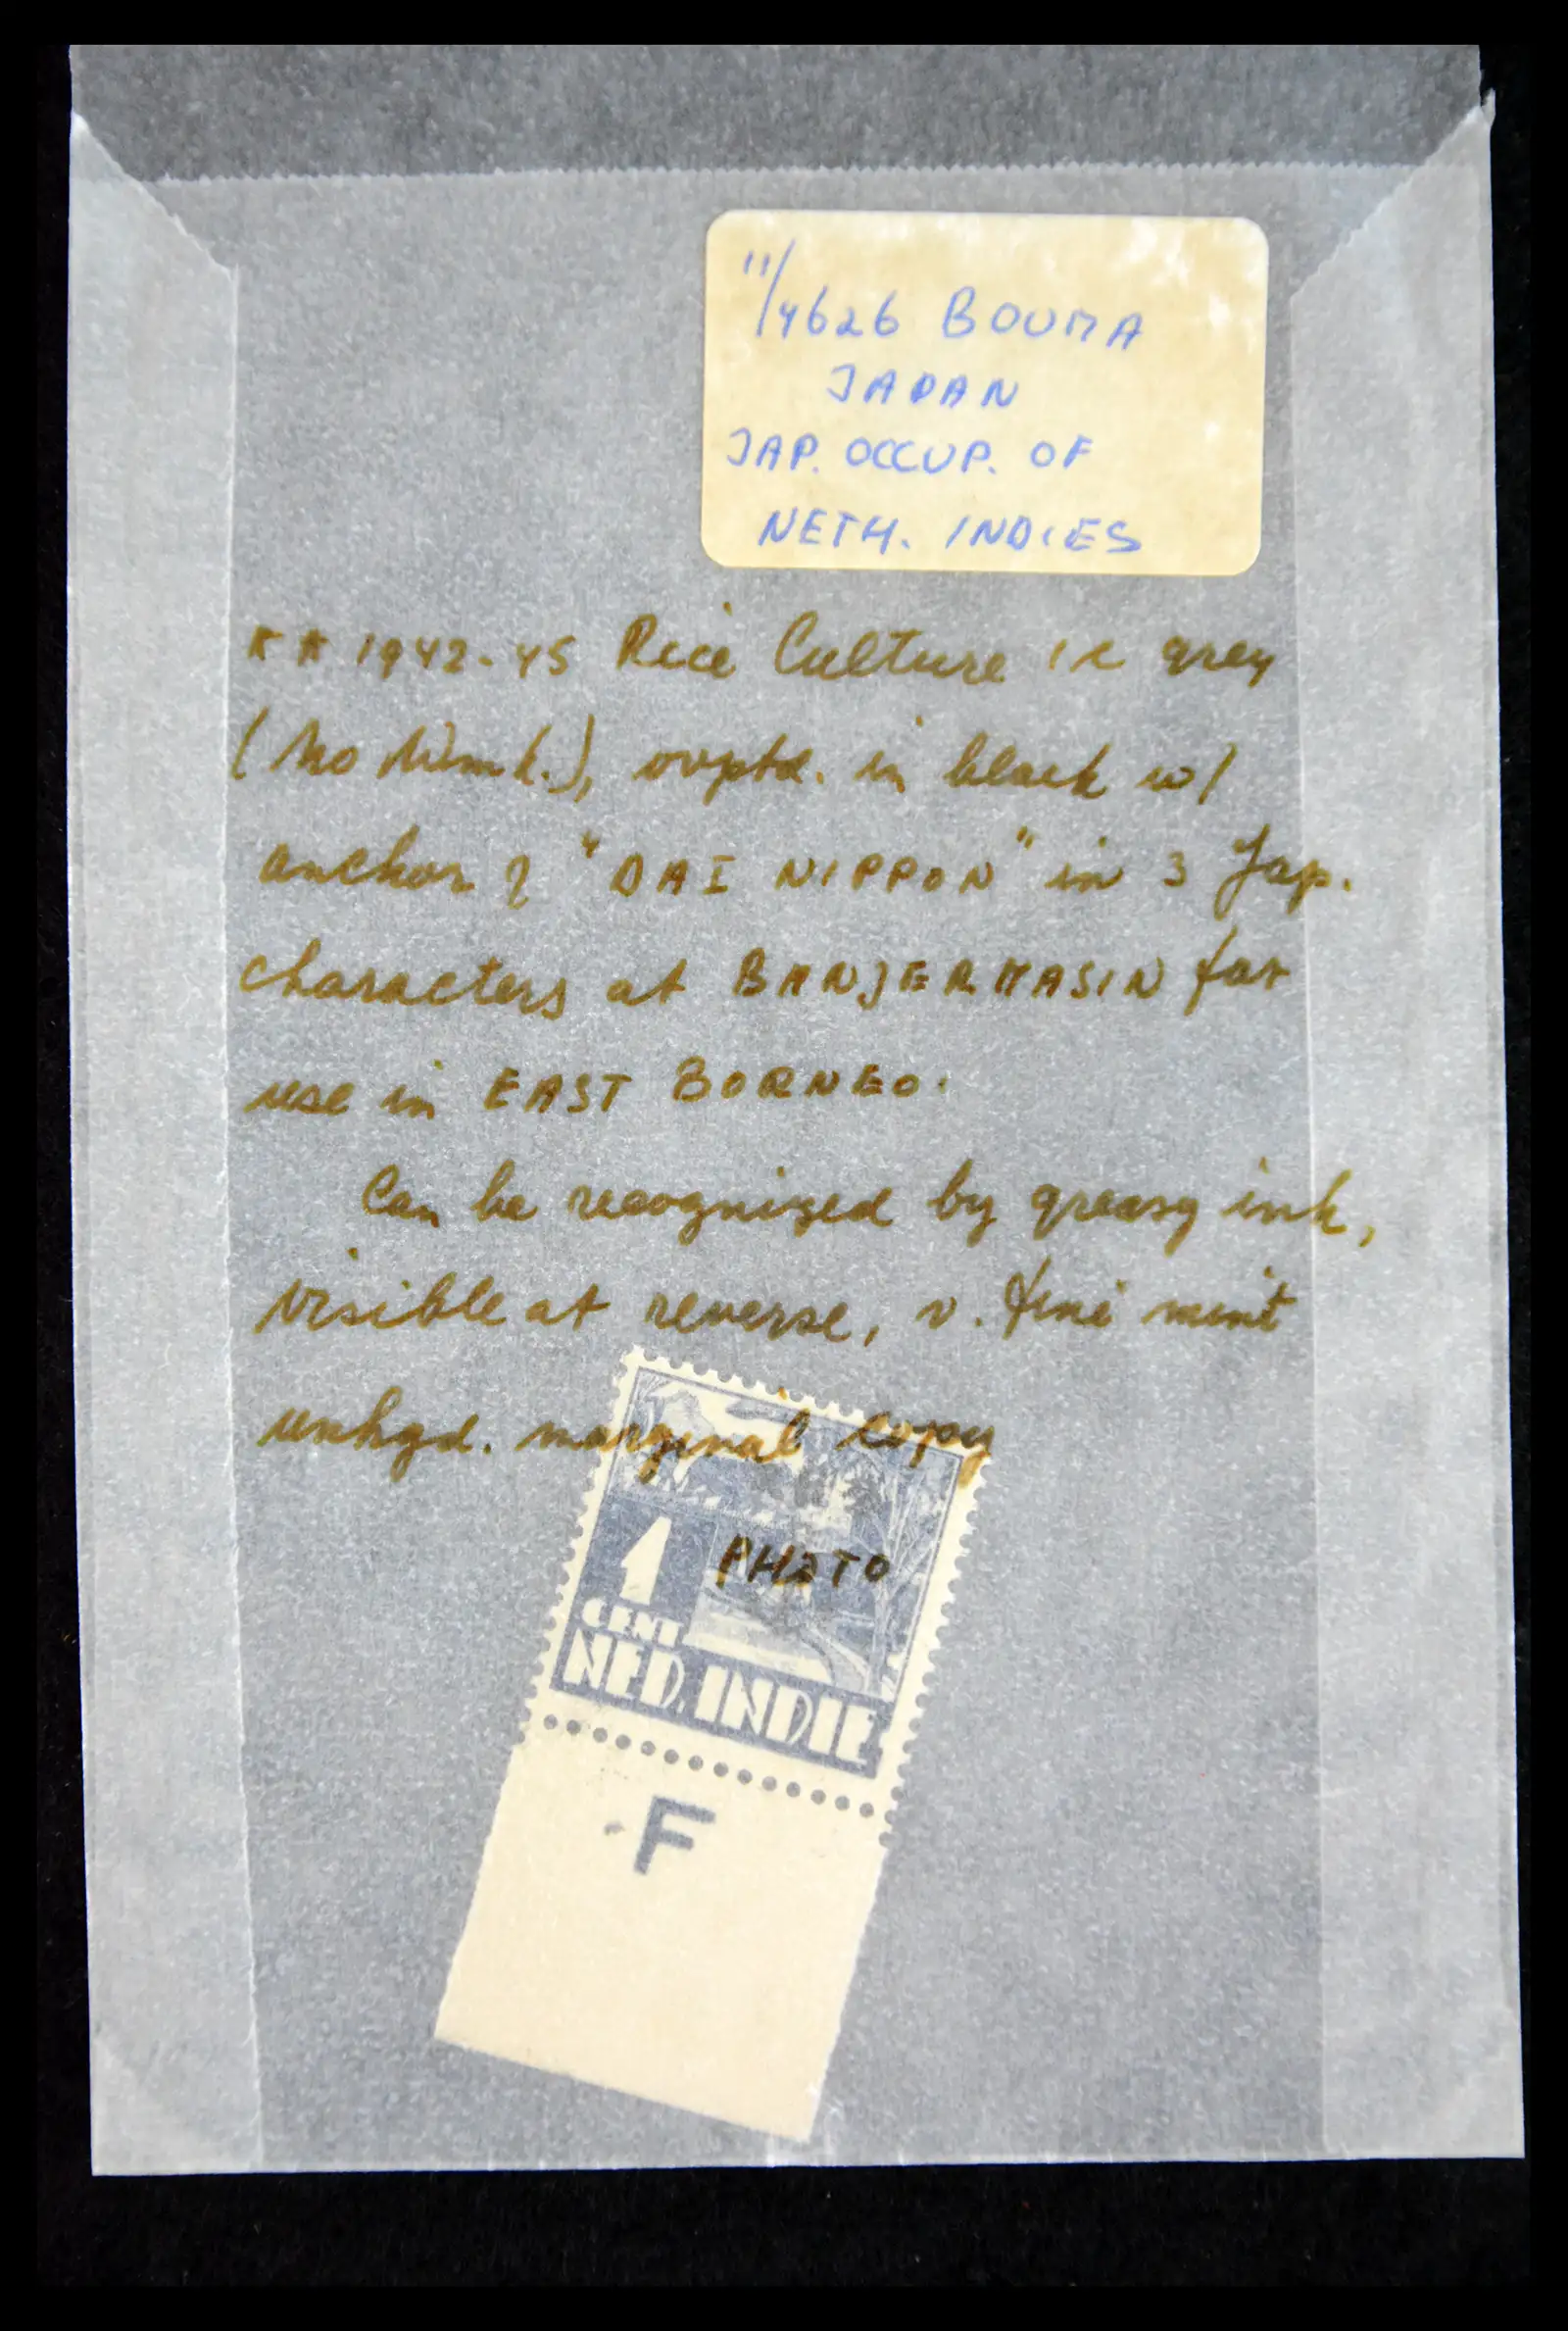 11/4626 BOUMA
JAPAN
JAP. OCCUP. OF
NETH. INDIES
** 1942-45 Rice Culture 1c grey
(no wmk.), ovptd. in black w/
anchor & "DAI NIPPON" in 3 Jap.
characters at BANJERMASIN for
use in EAST BORNEO.
Can be recognized by greasy ink,
visible at reverse, v. fine mint
unhgd. marginal copy
PHOTO
1
CENT
NED. INDIE
F